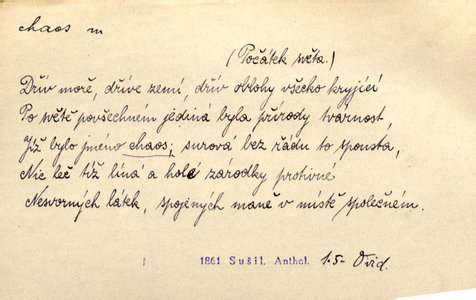 chaos m
(Počátek světa.)
Dřív moře, dříve zemí, dřív oblohy všecko kryjící
Po světě povšechném jediná byla přírody tvarnost,
Jíž bylo jméno chaos; surová bez řádu to spousta,
Nic leč tíž líná a holé zárodky protivné
Nesvorných látek, spojených maně v místě společném.
1861 Sušil. Anthol. 1.5. Ovid.